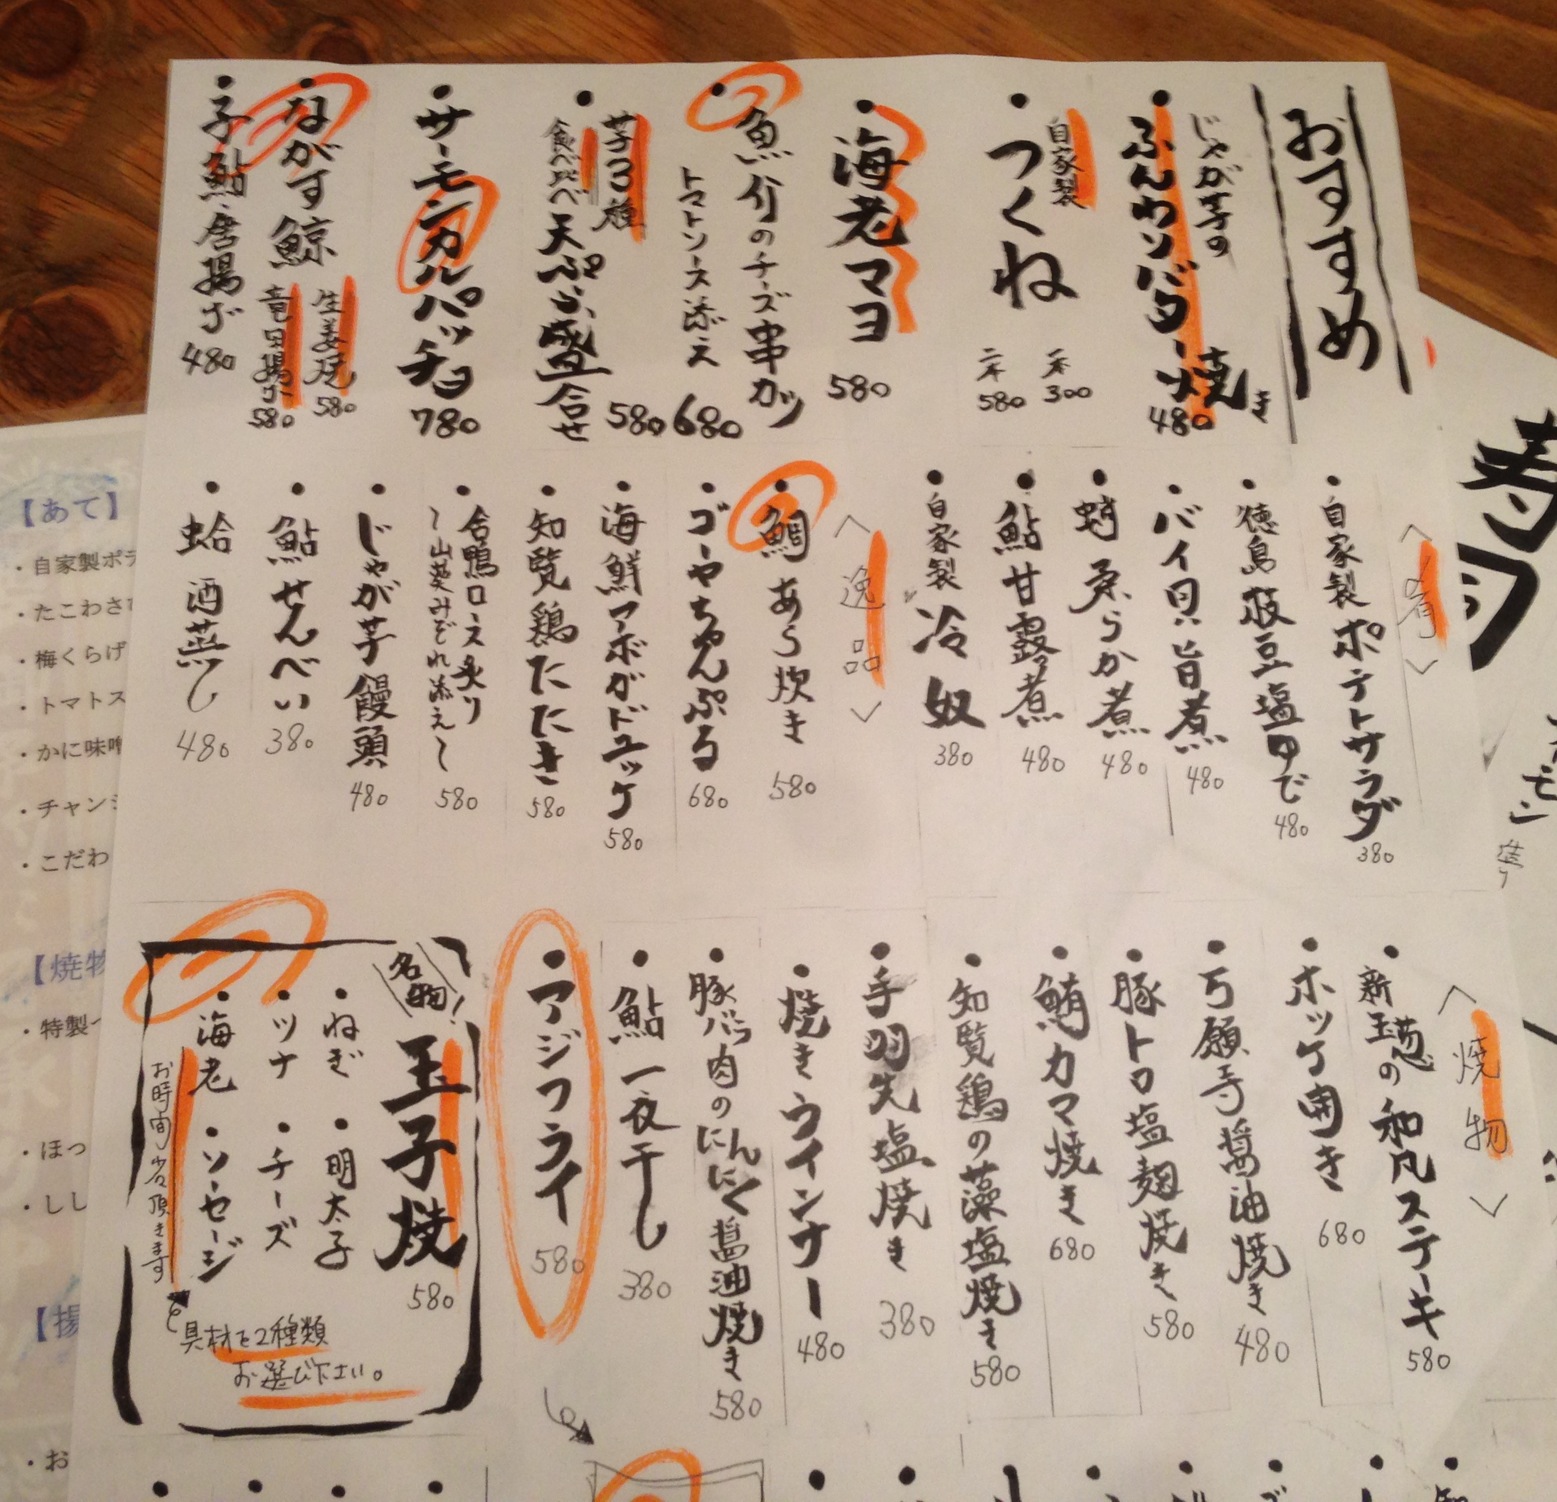 おすすめ
じゃが芋の
ふんわりバター焼き
480
自家製
つくね
一本 300
二本 580
海老マヨ
580
魚介のチーズ串カツ
トマトソース添え
680
芋3種
食べ比べ
天ぷら盛合せ
580
サーモンカルパッチョ
780
ながす鯨
生姜焼
580
竜田揚げ
580
子鮎唐揚げ
480
〈肴〉
自家製ポテトサラダ
380
徳島枝豆塩ゆで
480
バイ貝旨煮
480
蛸柔らか煮
480
鮎甘露煮
480
自家製冷奴
380
〈逸品〉
鯛あら炊き
580
ゴーヤちゃんぷる
680
海鮮アボガドユッケ
580
知覧鶏たたき
580
合鴨ロース炙り
〜山葵みぞれ添え〜
580
じゃが芋饅頭
480
鮎せんべい
380
蛤酒蒸し
480
〈焼物〉
新玉葱の和風ステーキ
580
ホッケ開き
680
万願寺醤油焼き
480
豚トロ塩麹焼き
580
鮪カマ焼き
680
知覧鶏の藻塩焼き
580
手羽先塩焼き
380
焼きウインナー
480
豚バラ肉のにんにく醤油焼き
580
鮎一夜干し
380
アジフライ
580
名物!
玉子焼
580
ねぎ
明太子
ツナ
チーズ
海老
ソーセージ
お時間少々頂きます
具材を2種類
お選び下さい。
寿司
【あて】
・自家製ポテ
・たこわさ
・梅くらげ
・トマトス
・かに味噌
・チャン
・こだわ
【焼物
・特製
・ほっ
・しし
【揚
・お